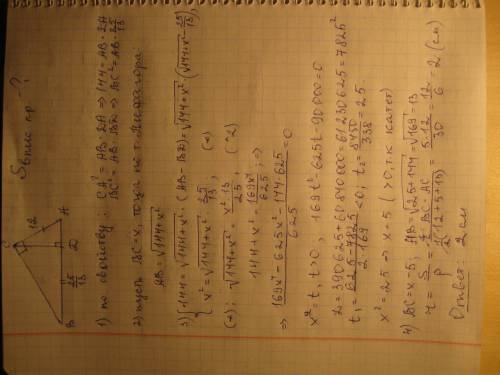 Sвпис. кр - ?
C
12
A
D
25/13
B
1) по свойству: CA² = AB · DA ⇒ 144 = AB · DA
BC² = AB · BD ⇒ BC² = AB · 25/13
2) пусть BC = x, тогда по т. Пифагора:
AB = √(144+x²)
3) { 144 = √(144+x²) · (AB - BD) = √(144+x²) (√(144+x²) - 25/13),
x² = √(144+x²) · 25/13 (*)
(*): √(144+x²) = x² · 13/25, (^2)
144 + x² = 169x⁴/625 ⇒
⇒ (169x⁴ - 625x² - 144·625)/625 = 0
x² = t, t > 0, 169t² - 625t - 90000 = 0
D = 390625 + 60840000 = 61230625 = 7825²
t₁ = (625 - 7825)/(2·169) < 0; t₂ = 8450/338 = 25.
x² = 25 ⇒ x = 5 (>0, т.к. катет)
4) BC = x = 5; AB = √(25+144) = √169 = 13
r = S/p = (1/2 · BC · AC)/(1/2 (12+5+13)) = 5·12/30 = 12/6 = 2 (см)
Ответ: 2 см